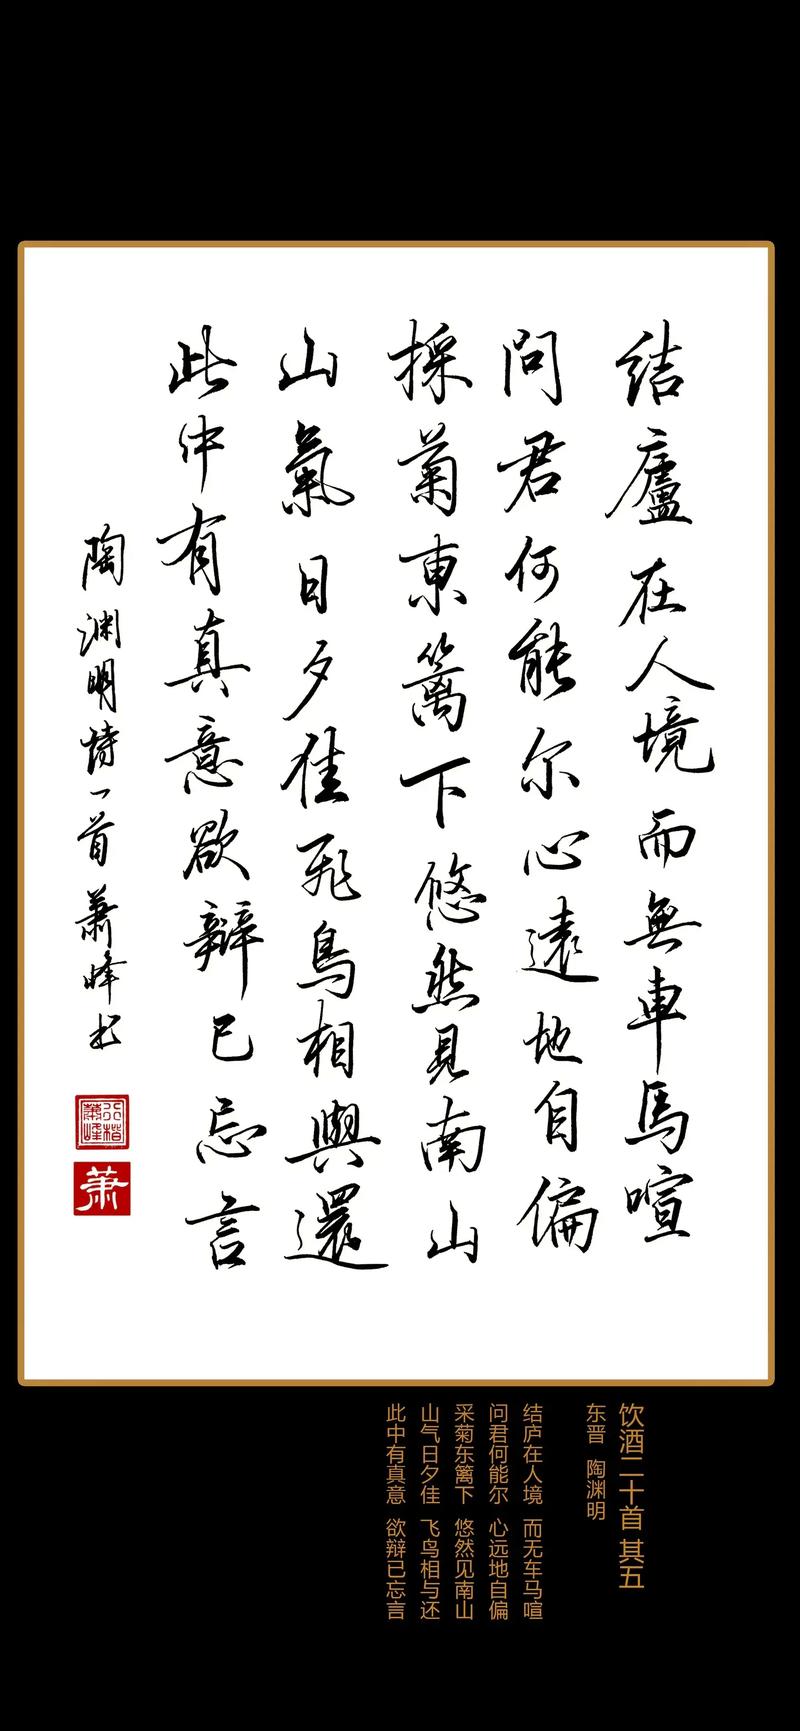 结廬在人境而無車馬喧
问君何能尔心遠地自偏
採菊東篱下悠然見南山
山氣日夕佳飛鳥相與還
此中有真意欲辯已忘言
陶渊明詩一首 萧峰书
萧峰行楷
萧
饮酒二十首 其五
东晋 陶渊明
结庐在人境 而无车马喧
问君何能尔 心远地自偏
采菊东篱下 悠然见南山
山气日夕佳 飞鸟相与还
此中有真意 欲辩已忘言